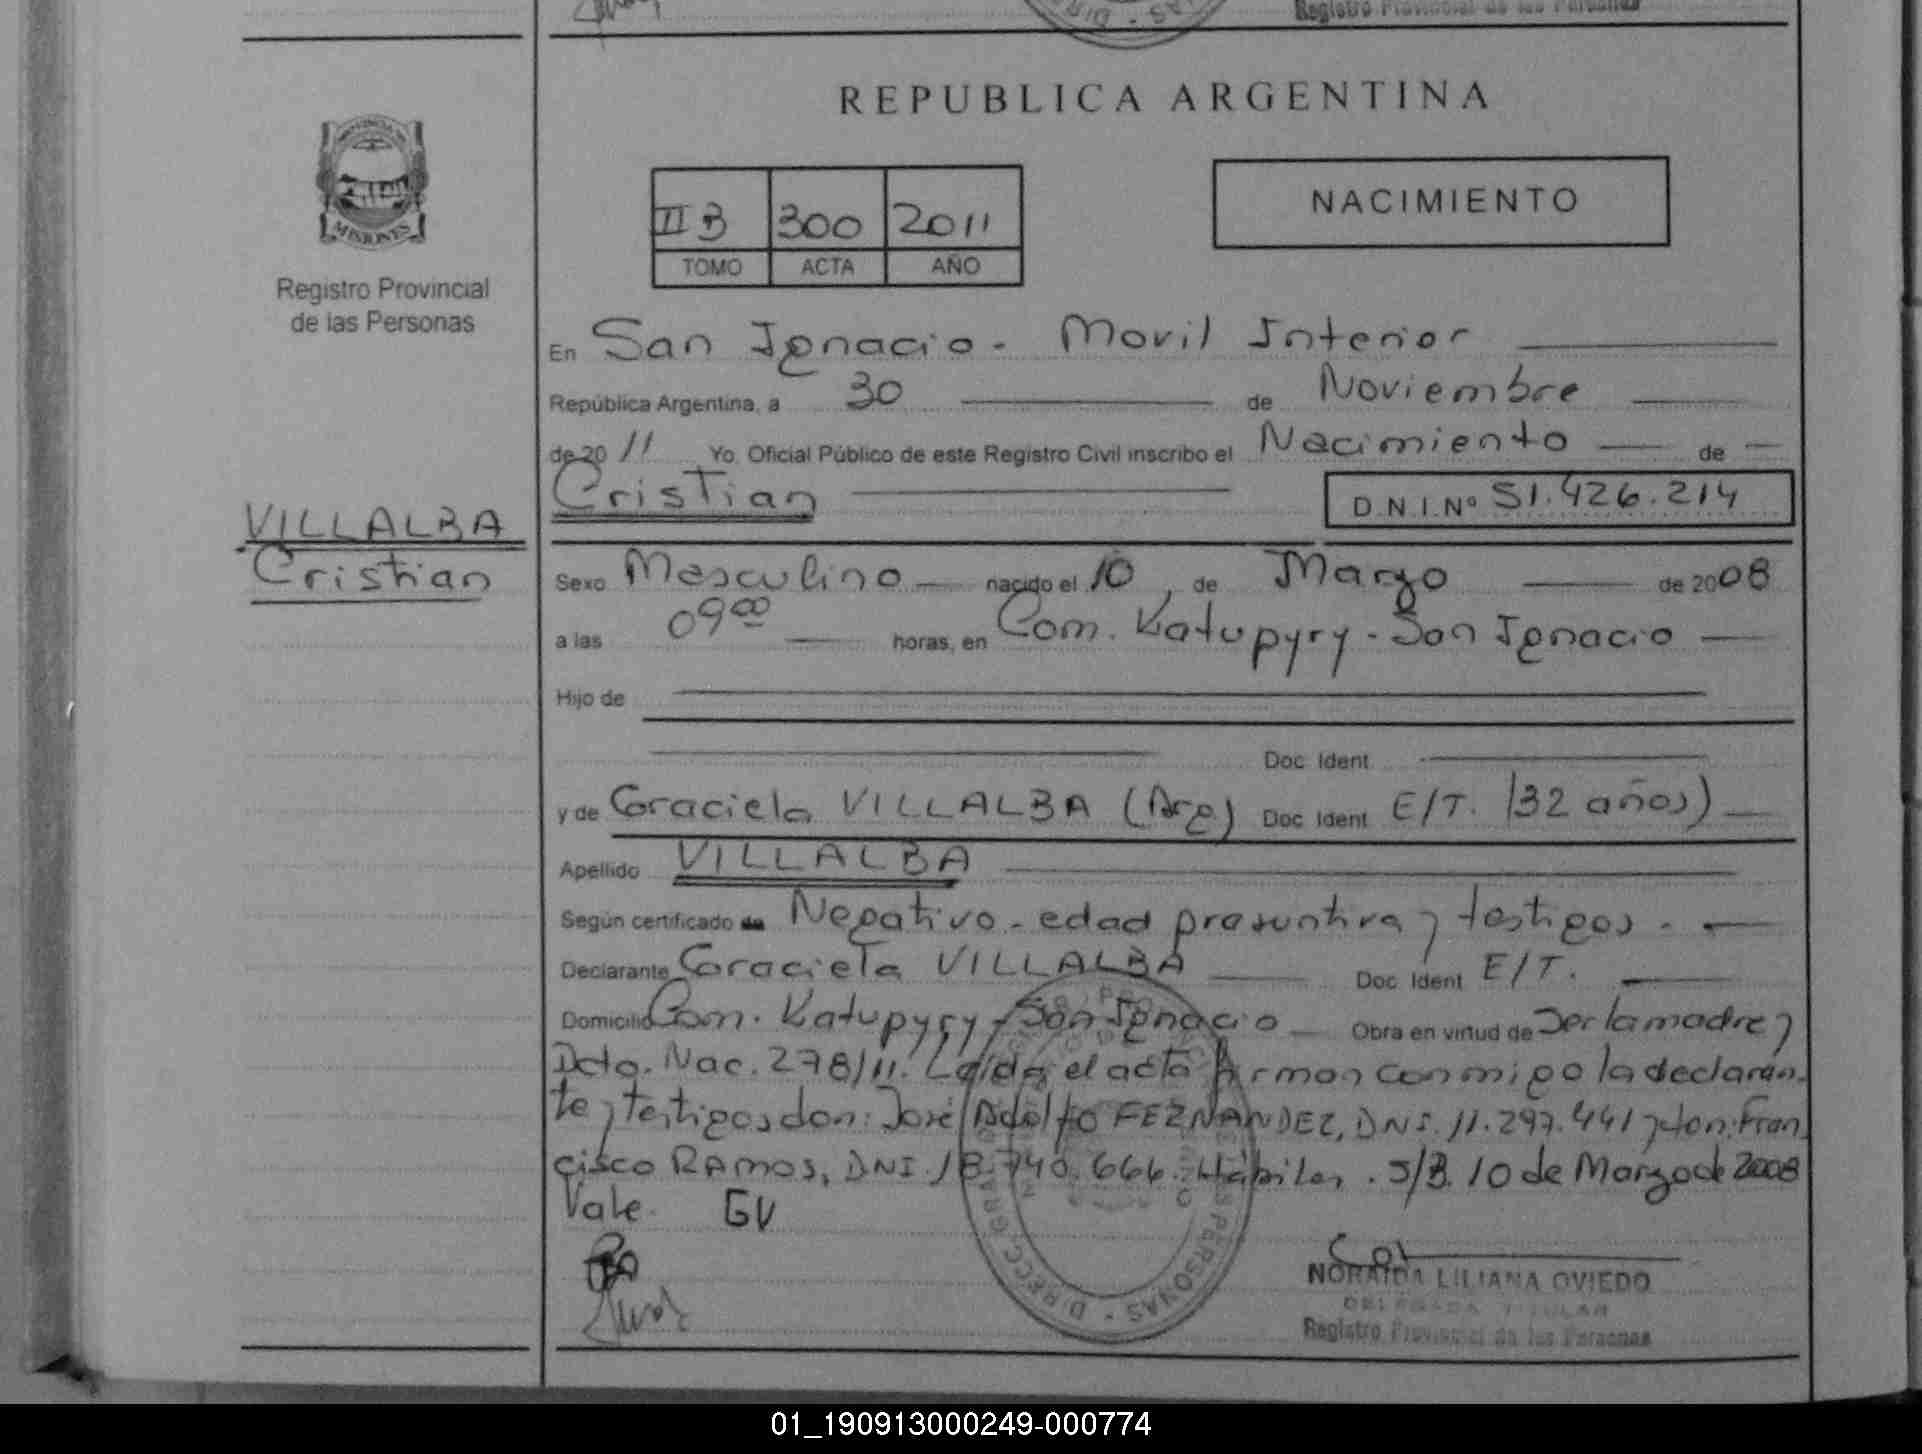 Registro Provincial de las Personas
REPUBLICA ARGENTINA
PROVINCIA DE
MISIONES
Registro Provincial
de las Personas
II B 300 2011
TOMO ACTA AÑO
NACIMIENTO
En San Ignacio - Movil Interior
República Argentina, a 30 de Noviembre
de 20 11 Yo, Oficial Público de este Registro Civil inscribo el Nacimiento de
Cristian D.N.I.Nº 51.426.214
VILLALBA
Cristian
Sexo Masculino nacido el 10, de Marzo de 2008
a las 09 00 horas, en Com. Katupyry - San Ignacio
Hijo de
Doc. Ident.
y de Graciela VILLALBA (Arg) Doc. Ident. E/T. (32 años)
Apellido VILLALBA
Según certificado de Negativo - edad presuntiva y testigos.
Declarante Graciela VILLALBA Doc. Ident. E/T.
Domicilio Com. Katupyry - San Ignacio Obra en virtud de Ser la madre y
Dcto. Nac. 278/11. Leída el acta firman conmigo la declaran-
te y testigos don: José Adolfo FERNANDEZ, DNI. 11.297.441 y don: Fran
cisco RAMOS, DNI. 18.740.666. Hábiles. S/B. 10 de Marzo de 2008
Vale. GV
NORAIDA LILIANA OVIEDO
DELEGADA TITULAR
Registro Provincial de las Personas
01_190913000249-000774